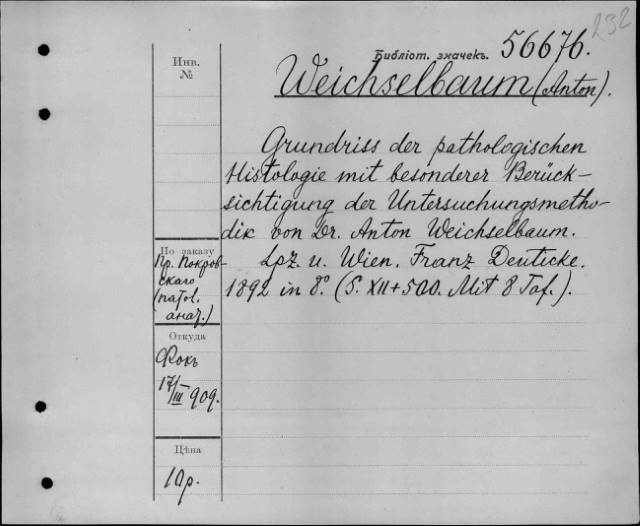 232
Библіот. значекъ. 56676.
Weichselbaum (Anton).
Инв.
№
Grundriss der pathologischen
Histologie mit besonderer Berück-
sichtigung der Untersuchungsmetho-
dik von Dr. Anton Weichselbaum.
Lpz. u. Wien. Franz Deuticke.
1892 in 8°. (S. XII+500. Mit 8 Taf.).
По заказу
Пр. Покров-
скаго
(патол.
анат.)
Откуда
Фокъ
17/III 909.
Цѣна
10р.